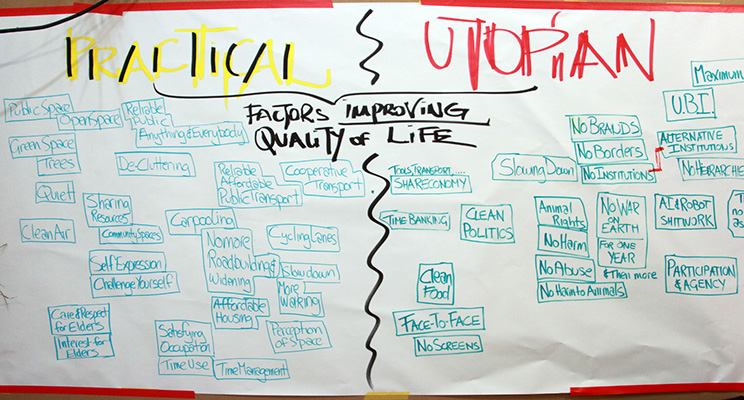 PRACTICAL
UTOPIAN
FACTORS IMPROVING
QUALITY of LIFE
Public Space
Open Space
Reliable
Public
Anything & Everybody
Green Space
Trees
De-Cluttering
Quiet
Reliable
Affordable
Public Transport
Cooperative
Transport
Sharing
Resources
Community Spaces
Clean Air
Carpooling
No more
Roadbuilding &
Widening
Cycling Lanes
Slow down
More
Walking
Self Expression
Challenge Yourself
Affordable
Housing
Care & Respect
for Elders
Interest for
Elders
Satisfying
Occupation
Time Use
Time Management
Perception
of Space
TOOLS, TRANSPORT, ....
SHARECONOMY
Slowing Down
TIME BANKING
CLEAN
POLITICS
Clean
Food
FACE-TO-FACE
NO SCREENS
No BRANDS
No Borders
No INSTITUTIONS
ALTERNATIVE
INSTITUTIONS
Maximum
U.B.I.
No HIERARCHIE
Animal
Rights
No Harm
No Abuse
No Harm to Animals
No WAR
on
EARTH
FOR ONE
YEAR
& then more
AI & ROBOT
SHITWORK
PARTICIPATION
& AGENCY